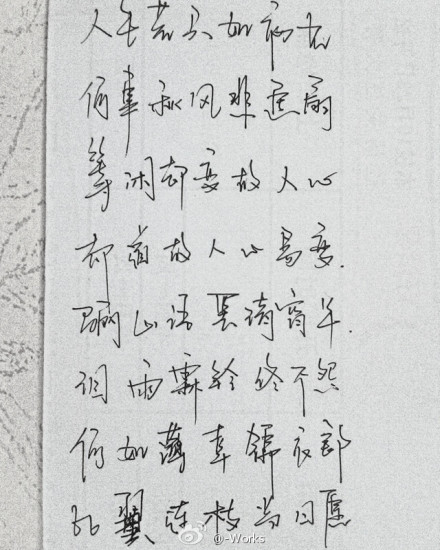 人生若只如初见
何事秋风悲画扇
等闲却变故人心
却道故人心易变.
骊山语罢清宵半.
泪雨霖铃终不怨
何如薄幸锦衣郎
比翼连枝当日愿
@-Works